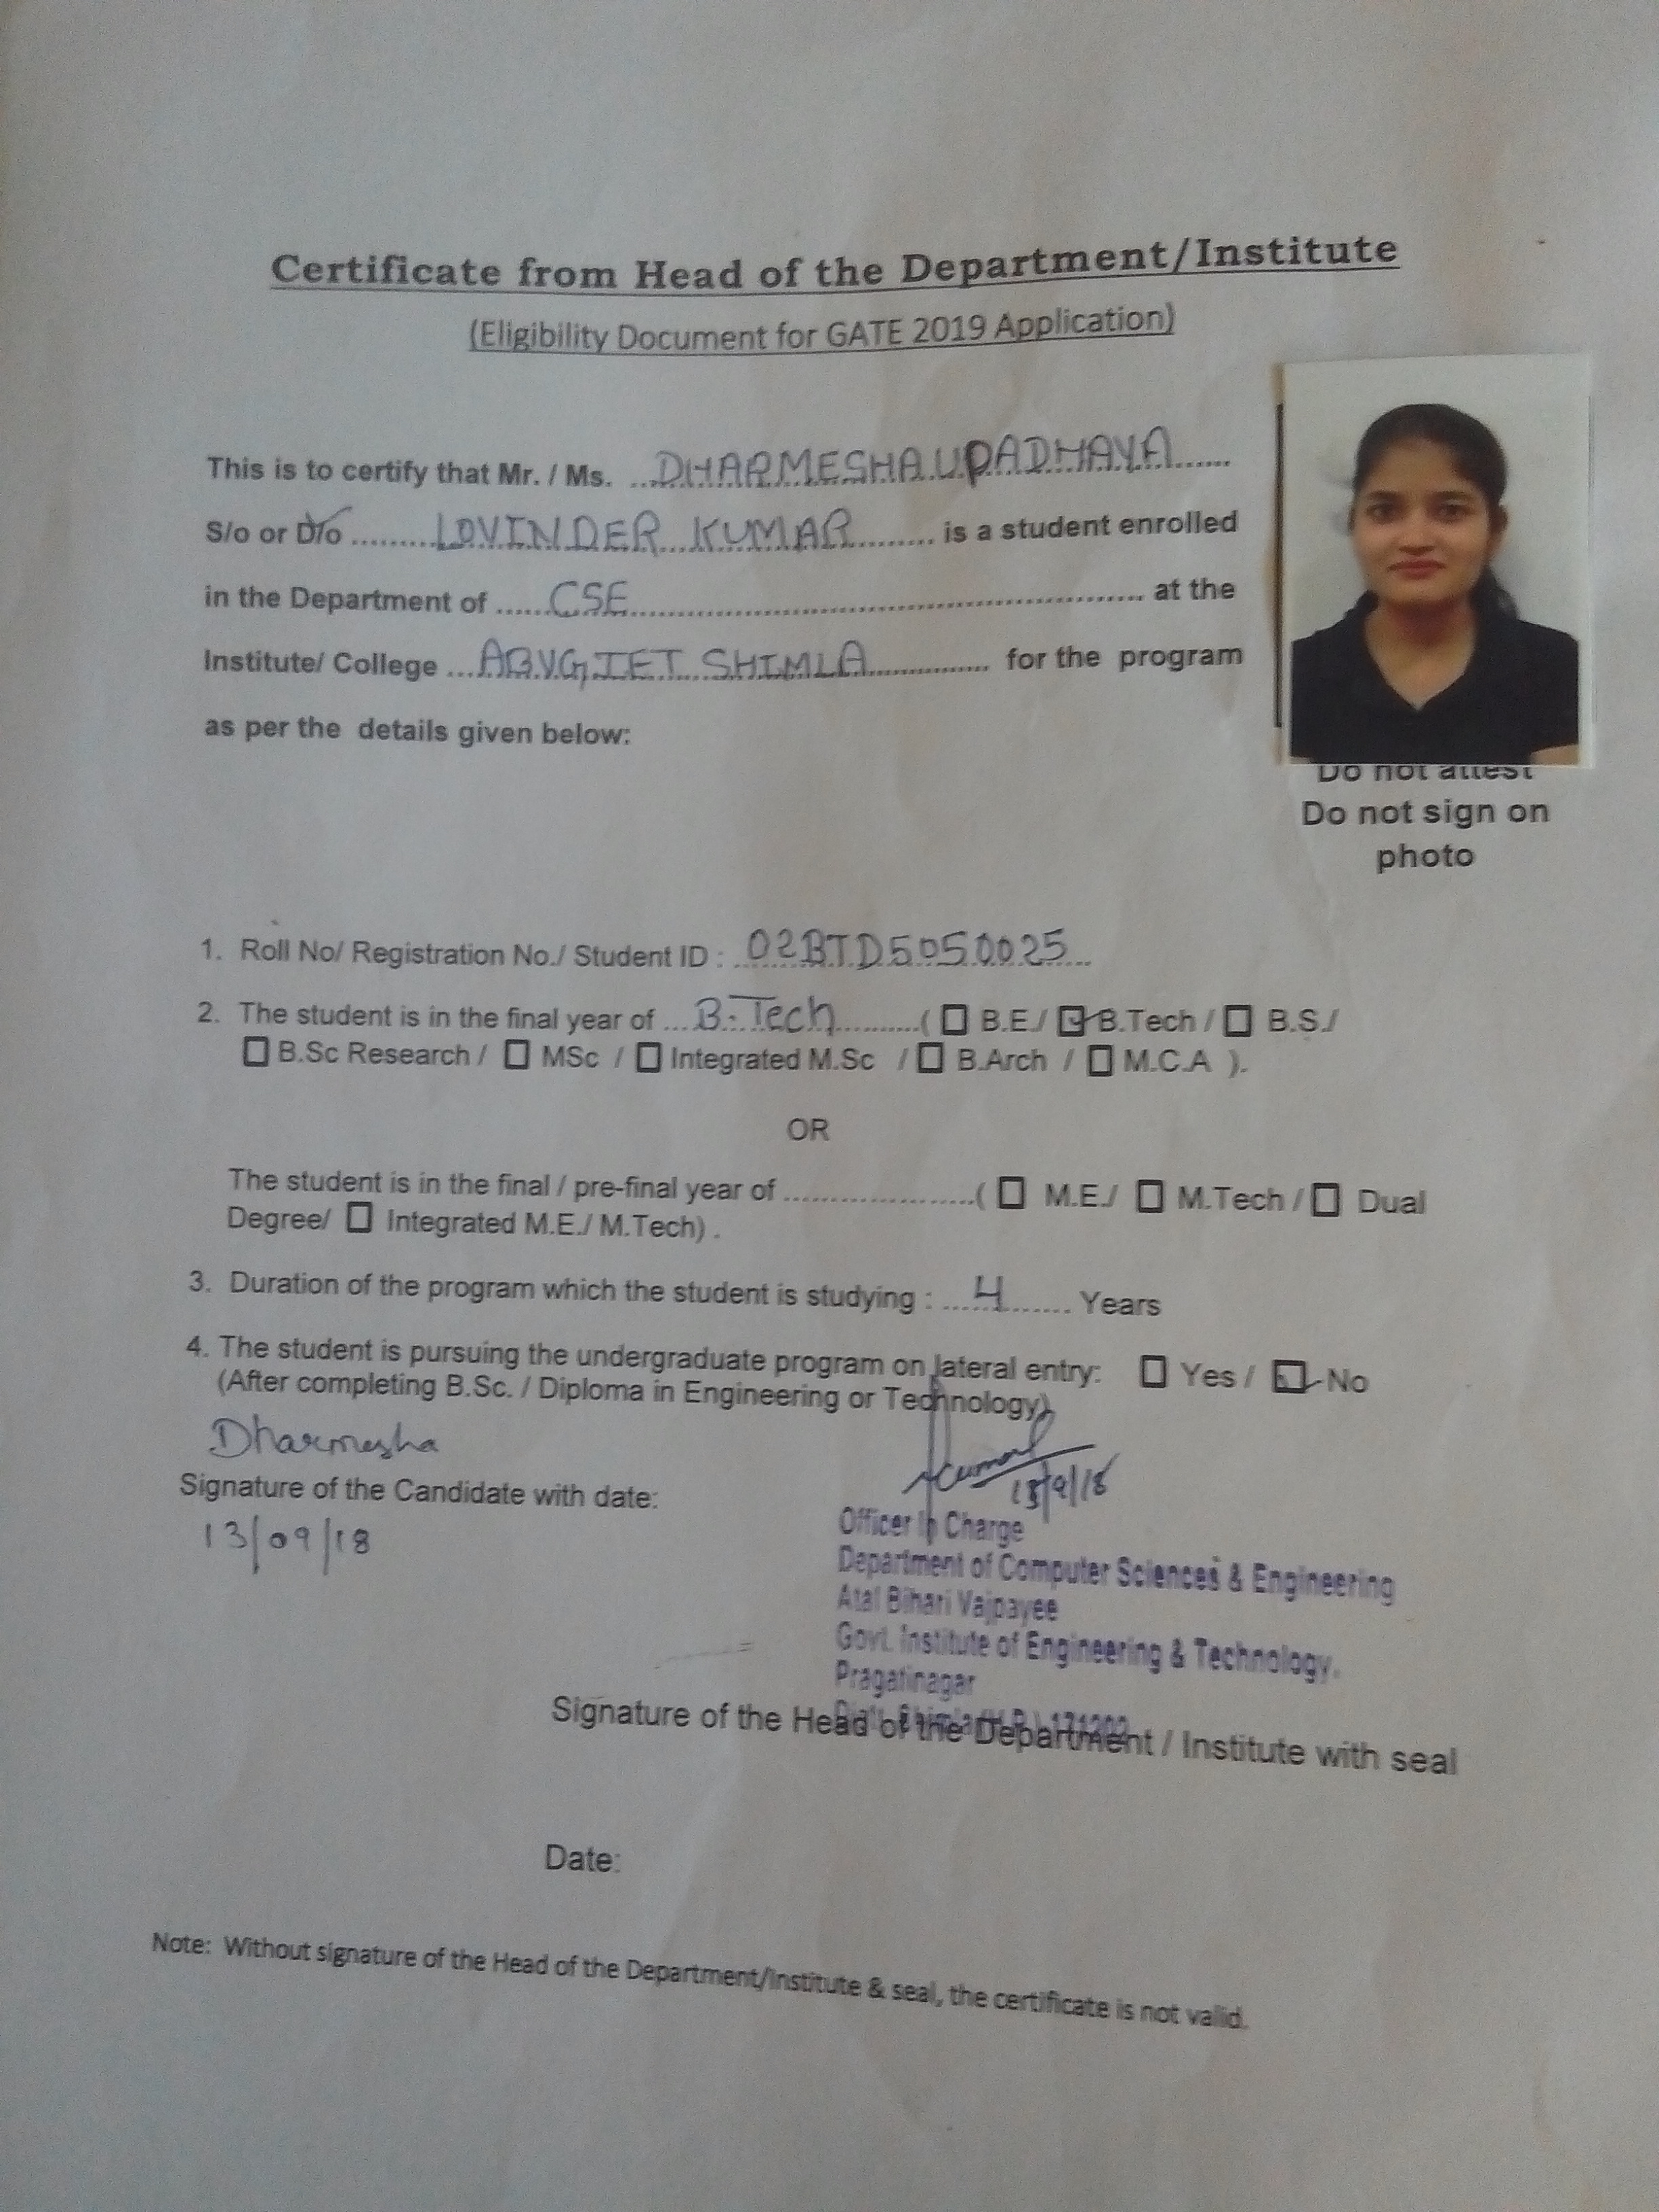 Certificate from Head of the Department/Institute
(Eligibility Document for GATE 2019 Application)
This is to certify that Mr. / Ms. ...DHARMESHA UPADHAYA......
S/o or D/o .........LOVINDER KUMAR......... is a student enrolled
in the Department of ......CSE................................................ at the
Institute/ College ...ABVGIET SHIMLA............. for the program
as per the details given below:
Do not attest
Do not sign on
photo
1. Roll No/ Registration No./ Student ID : ..02BTD5050025...
2. The student is in the final year of ...B.Tech..........( ☐ B.E./ ☑ B.Tech / ☐ B.S./
☐ B.Sc Research / ☐ MSc / ☐ Integrated M.Sc / ☐ B.Arch / ☐ M.C.A ).
OR
The student is in the final / pre-final year of ......................( ☐ M.E./ ☐ M.Tech / ☐ Dual
Degree/ ☐ Integrated M.E./ M.Tech) .
3. Duration of the program which the student is studying : .....4....... Years
4. The student is pursuing the undergraduate program on lateral entry: ☐ Yes / ☑ No
(After completing B.Sc. / Diploma in Engineering or Technology)
Dharmesha
Signature of the Candidate with date:
13/09/18
13/9/18
Officer In Charge
Department of Computer Sciences & Engineering
Atal Bihari Vajpayee
Govt. Institute of Engineering & Technology.
Pragatinagar
Signature of the Head of the Department / Institute with seal
Date:
Note: Without signature of the Head of the Department/Institute & seal, the certificate is not valid.